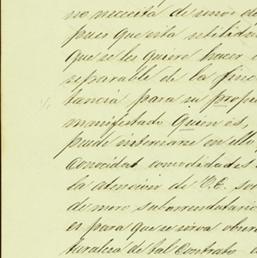 no necesita de unos d
pues que esta utilida
que se les quiere hacer e
separable de la finc
tancia para su prop
manifestado Quien es,
pude internarme en ello
conocidas comodidades
la atencion de V.E. so
de mero subarrendatario
es para que se sirva obser
turaleza de tal Contrato